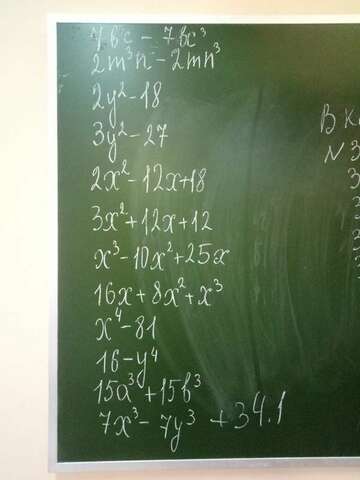 7bc - 7bc³
2m³n - 2mn³
2y² - 18
3y² - 27
2x² - 12x + 18
3x² + 12x + 12
x³ - 10x² + 25x
16x + 8x² + x³
x⁴ - 81
16 - y⁴
15a³ + 15b³
7x³ - 7y³ + 34.1
В К
N 3
3
3
3
3